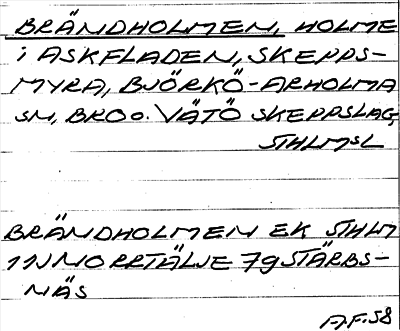 BRÄNDHOLMEN, HOLME
i ASKFLADEN, SKEPPS-
MYRA, BJÖRKÖ-ARHOLMA
SN, BRO o. VÄTÖ SKEPPSLAG,
STHLMSL
BRÄNDHOLMEN EK STHLM
11N NORRTÄLJE 7g STÄRBS-
NÄS
A.F. 58